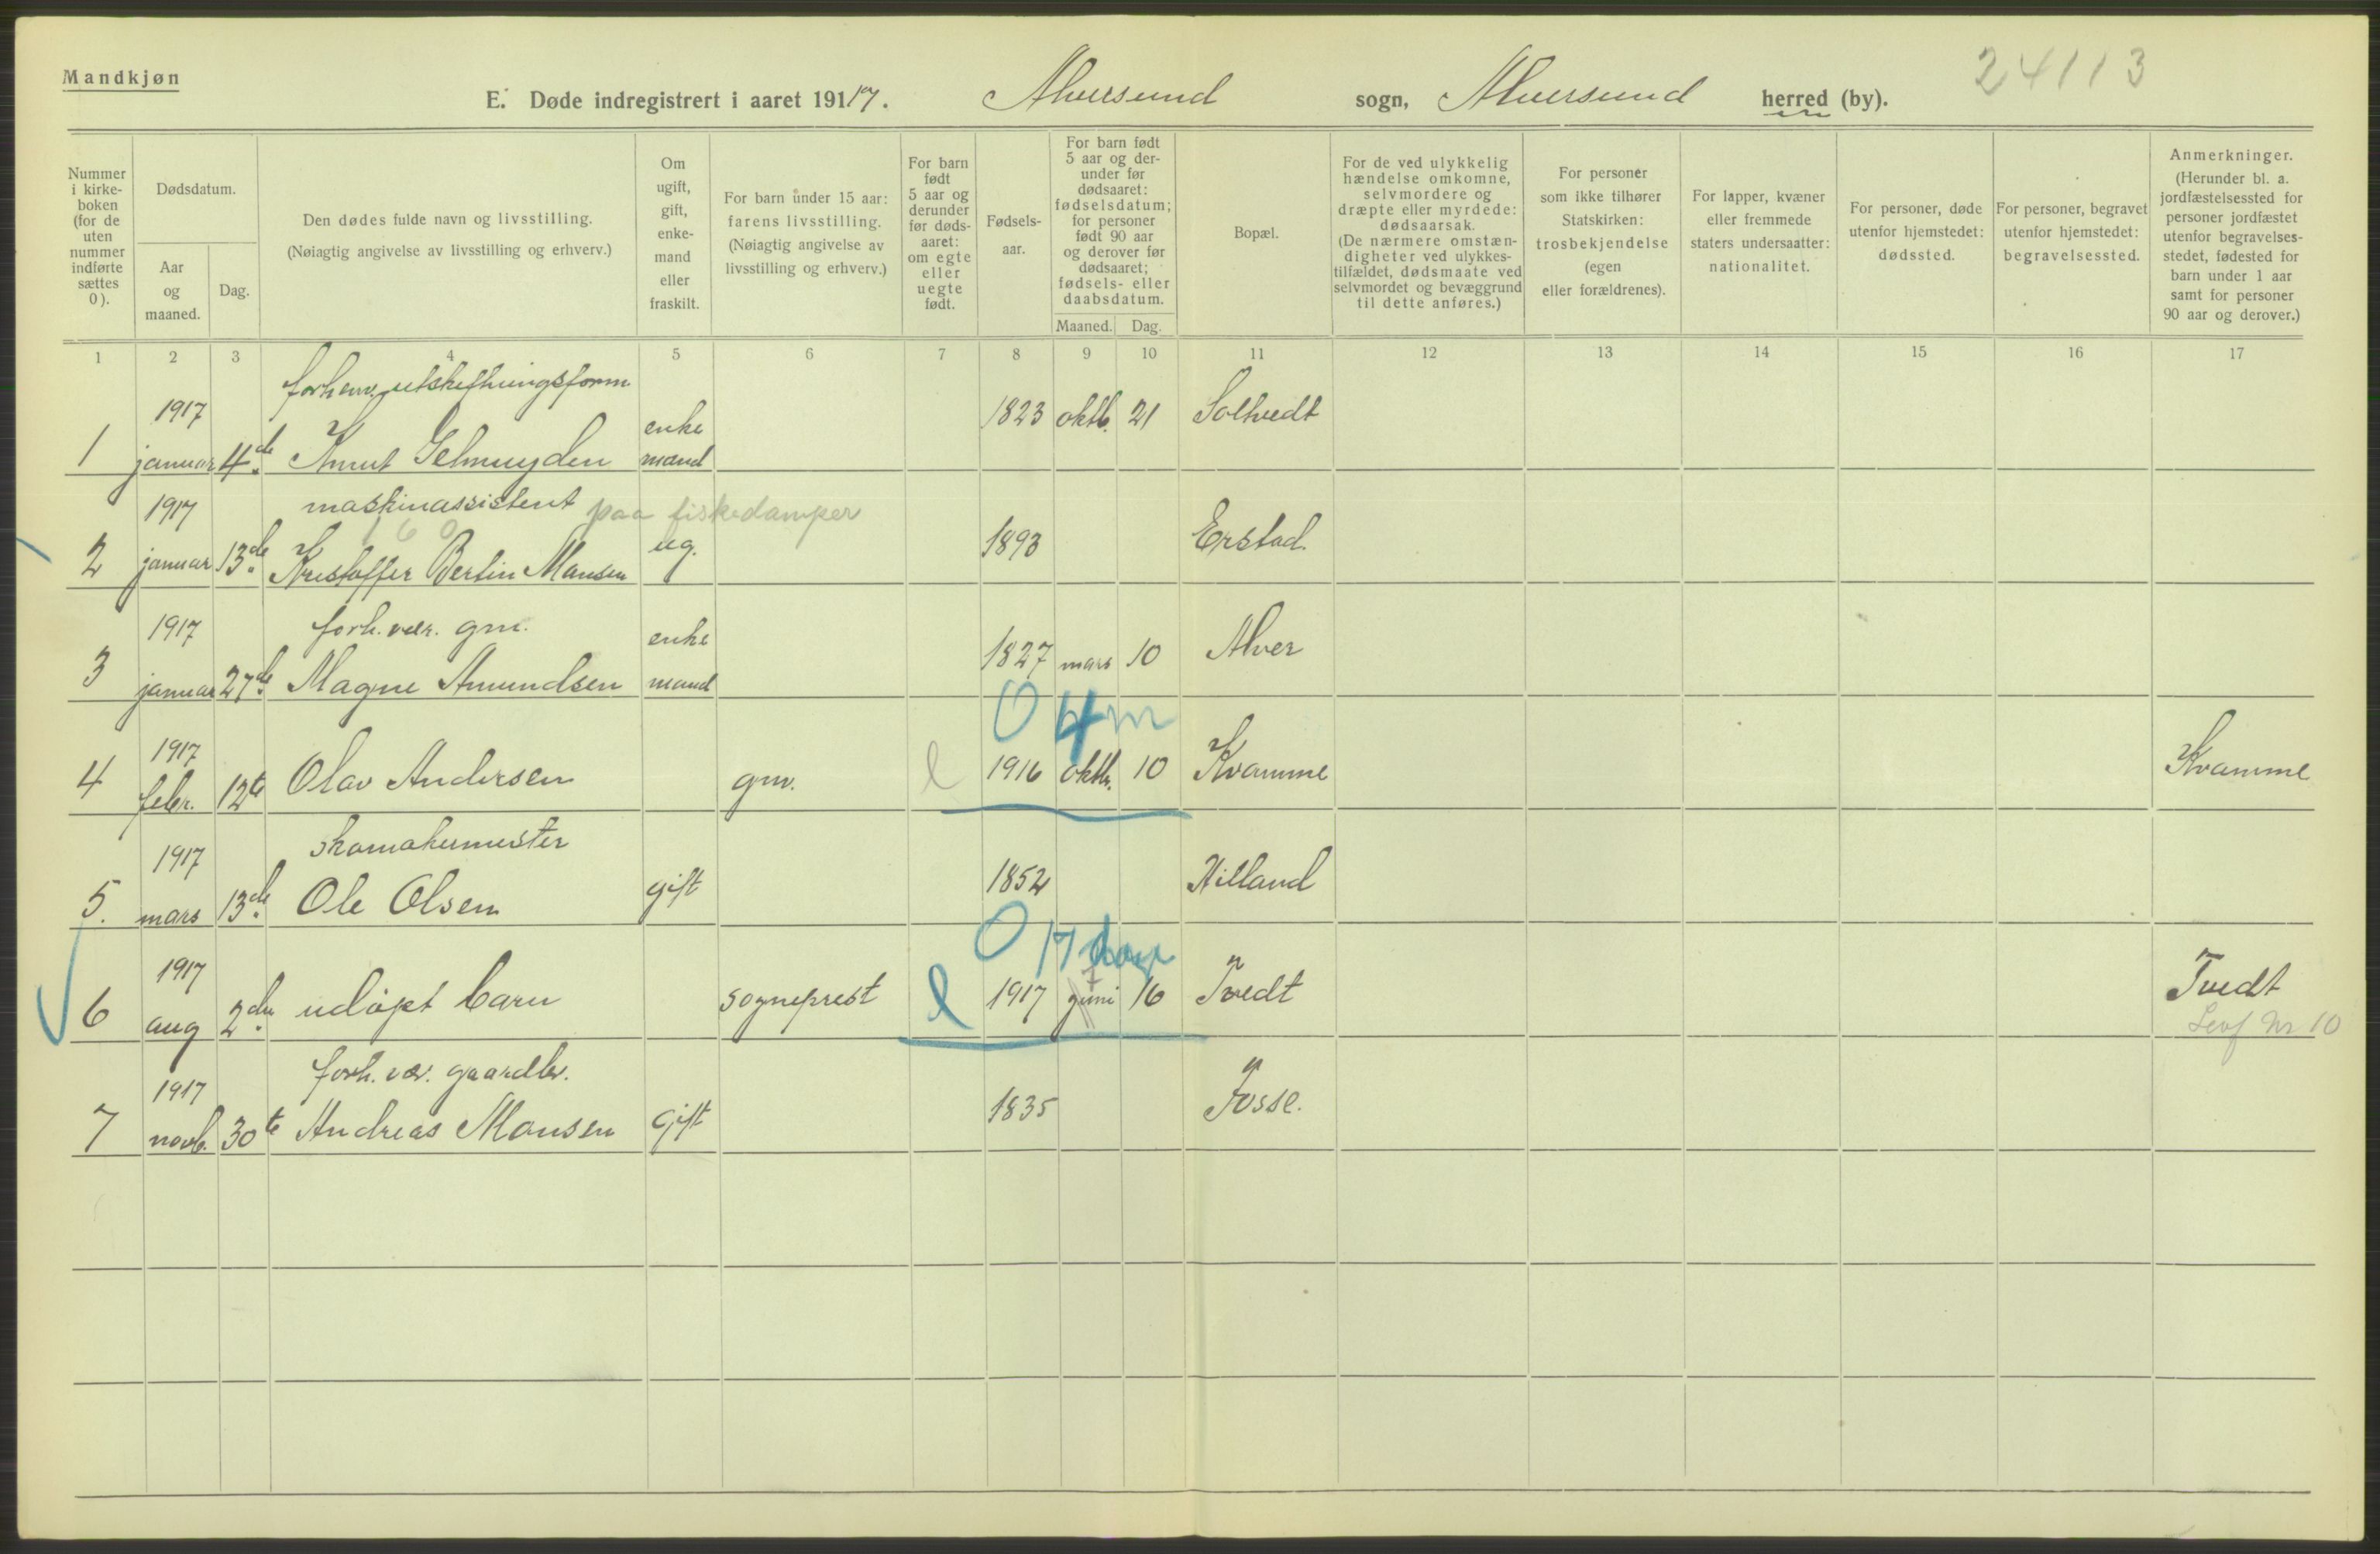 Mandkjøn
24113
E. Døde indregistrert i aaret 1917. Alversund sogn, Alversund herred (by).
Nummer i kirke-boken (for de uten nummer indførte sættes 0).
Dødsdatum.
Aar og maaned.
Dag.
Den dødes fulde navn og livsstilling.
(Nøiagtig angivelse av livsstilling og erhverv.)
Om ugift, gift, enke-mand eller fraskilt.
For barn under 15 aar: farens livsstilling.
(Nøiagtig angivelse av livsstilling og erhverv.)
For barn født 5 aar og derunder før døds-aaret: om egte eller uegte født.
Fødsels-aar.
For barn født 5 aar og der-under før dødsaaret: fødselsdatum; for personer født 90 aar og derover før dødsaaret; fødsels- eller daabsdatum.
Maaned. Dag.
Bopæl.
For de ved ulykkelig hændelse omkomne, selvmordere og dræpte eller myrdede: dødsaarsak.
(De nærmere omstæn-digheter ved ulykkes-tilfældet, dødsmaate ved selvmordet og bevæggrund til dette anføres.)
For personer som ikke tilhører Statskirken: trosbekjendelse (egen eller forældrenes).
For lapper, kvæner eller fremmede staters undersaatter: nationalitet.
For personer, døde utenfor hjemstedet: dødssted.
For personer, begravet utenfor hjemstedet: begravelsessted.
Anmerkninger.
(Herunder bl. a. jordfæstelsessted for personer jordfæstet utenfor begravelses-stedet, fødested for barn under 1 aar samt for personer 90 aar og derover.)
1 2 3 4 5 6 7 8 9 10 11 12 13 14 15 16 17
forhenv. utskiftningsform.
1 1917 januar 4de Knut Gelmuyden enke mand 1823 oktb. 21 Solhvedt
maskinassistent paa fiskedamper
160
2 1917 januar 13de Kristoffer Bertin Monsen ug. 1893 Erstad
forh. vær. gm.
3 1917 januar 27de Magne Amundsen enke mand 1827 mars 10 Alver
0 4 m
4 1917 febr. 12te Olav Andersen gm. l 1916 oktbr. 10 Kvamme Kvamme
skomakermester
5. 1917 mars 13de Ole Olsen gift 1852 Hilland
0 17 dage
6 1917 aug 2den udøpt barn sogneprest l 1917 juni 16 Tvedt Tvedt
Nr 10
forh. vær. gaardbr.
7 1917 novb. 30te Andreas Monsen gift 1835 Fosse.